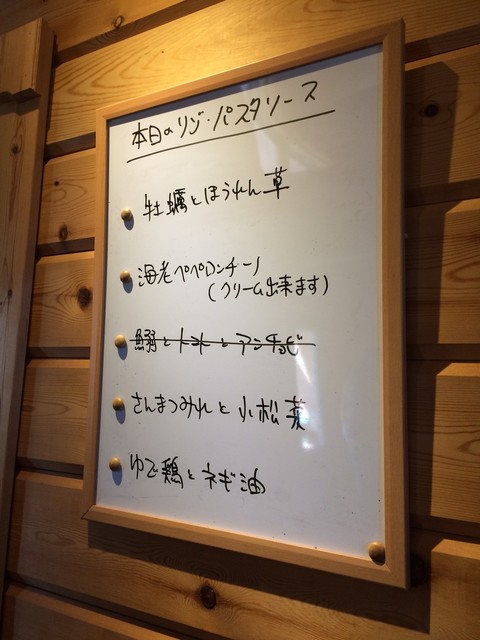 本日のリゾ・パスタソース
牡蠣とほうれん草
海老ペペロンチーノ
(クリーム出来ます)
鰯とトマトとアンチョビ
さんまつみれと小松菜
ゆで鶏とネギ油